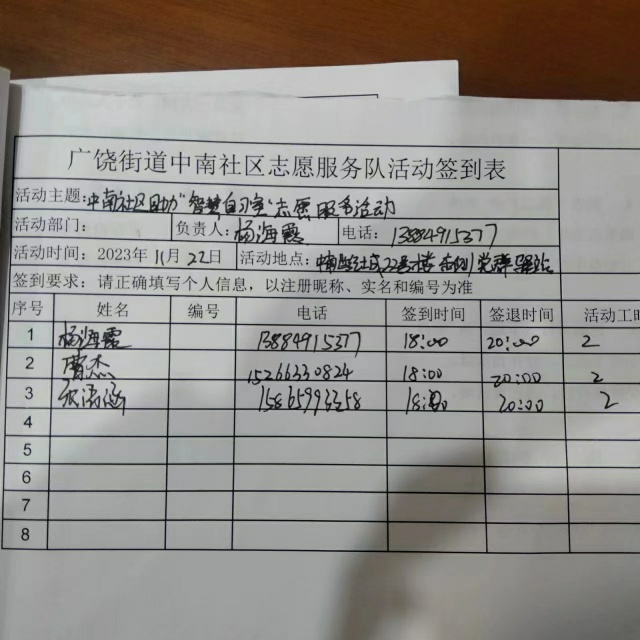 广饶街道中南社区志愿服务队活动签到表
活动主题:中南社区助力“智慧自习室”志愿服务活动
活动部门: 负责人:杨海霞 电话:13884915377
活动时间:2023年11月22日 活动地点:中南世纪城22号楼 党群驿站
签到要求:请正确填写个人信息,以注册昵称、实名和编号为准
序号 姓名 编号 电话 签到时间 签退时间 活动工时
1 杨海霞 13884915377 18:00 20:00 2
2 曹杰 15266330824 18:00 20:00 2
3 15865993258 18:00 20:00 2
4
5
6
7
8